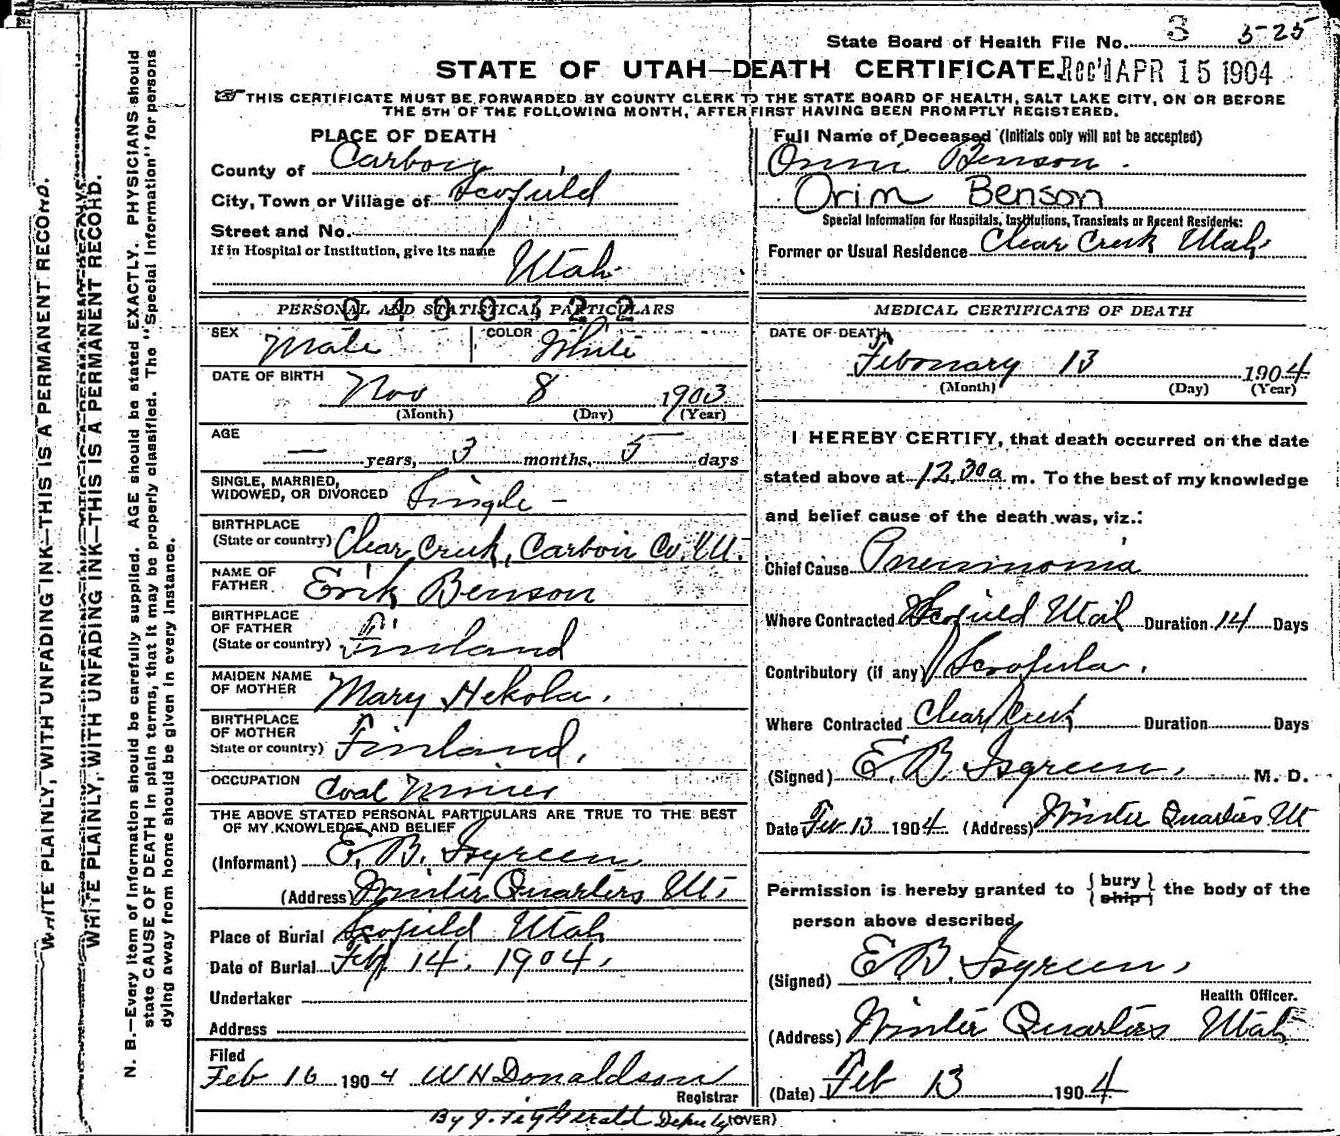 State Board of Health File No. 3 5-25
STATE OF UTAH—DEATH CERTIFICATE. Rec'd APR 15 1904
THIS CERTIFICATE MUST BE FORWARDED BY COUNTY CLERK TO THE STATE BOARD OF HEALTH, SALT LAKE CITY, ON OR BEFORE
THE 5TH OF THE FOLLOWING MONTH, AFTER FIRST HAVING BEEN PROMPTLY REGISTERED.
WRITE PLAINLY, WITH UNFADING INK—THIS IS A PERMANENT RECORD.
WRITE PLAINLY, WITH UNFADING INK—THIS IS A PERMANENT RECORD.
N. B.—Every item of information should be carefully supplied. AGE should be stated EXACTLY. PHYSICIANS should
state CAUSE OF DEATH in plain terms, that it may be properly classified. The "Special Information" for persons
dying away from home should be given in every instance.
PLACE OF DEATH
County of Carbon
City, Town or Village of Scofield
Street and No.
If in Hospital or Institution, give its name
Utah
PERSONAL AND STATISTICAL PARTICULARS
0400322
SEX Male COLOR White
DATE OF BIRTH Nov 8 1903
(Month) (Day) (Year)
AGE
— years, 3 months, 5 days
SINGLE, MARRIED,
WIDOWED, OR DIVORCED Single –
BIRTHPLACE
(State or country) Clear Creek, Carbon Co. Ut.
NAME OF
FATHER Erik Benson
BIRTHPLACE
OF FATHER
(State or country) Finland
MAIDEN NAME
OF MOTHER Mary Hekola.
BIRTHPLACE
OF MOTHER
State or country) Finland,
OCCUPATION Coal Miner
THE ABOVE STATED PERSONAL PARTICULARS ARE TRUE TO THE BEST
OF MY KNOWLEDGE AND BELIEF
(Informant) E. B. Isgreen
(Address) Winter Quarters Ut.
Place of Burial Scofield Utah
Date of Burial Feb 14. 1904.
Undertaker
Address
Filed
Feb 16 1904 W H Donaldson
Registrar
By J. Fitzgerald Deputy (OVER)
Full Name of Deceased (Initials only will not be accepted)
Orim Benson.
Orim Benson
Special Information for Hospitals, Institutions, Transients or Recent Residents:
Former or Usual Residence Clear Creek Utah
MEDICAL CERTIFICATE OF DEATH
DATE OF DEATH
Febonary 13 1904
(Month) (Day) (Year)
I HEREBY CERTIFY, that death occurred on the date
stated above at 12.30 a m. To the best of my knowledge
and belief cause of the death was, viz.:
Chief Cause Pneumonia
Where Contracted Scofield Utah Duration 14 Days
Contributory (if any) Scrofula.
Where Contracted Clear Creek Duration Days
(Signed) E. B. Isgreen, M. D.
Date Feb 13 1904. (Address) Winter Quarters Ut
Permission is hereby granted to { bury ship } the body of the
person above described
(Signed) E. B. Isgreen,
Health Officer.
(Address) Winter Quarters Utah
(Date) Feb 13 1904